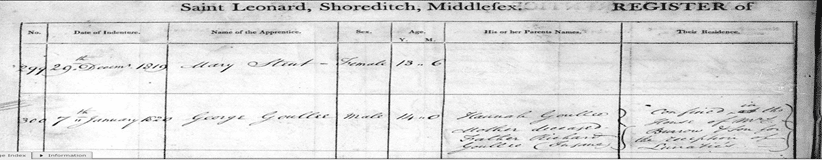 Saint Leonard, Shoreditch, Middlesex. REGISTER of
No. Date of Indenture. Name of the Apprentice. Sex. Age. His or her Parents Names. Their Residence.
Y. M.
299 29th Decemr 1819 Mary Stent Female 13 6
300 7th January 1820 George Goullee Male 14 0 Hannah Goullee
Mother deceased
Father Richard
Goullee Insane
Confined in the
House of
Burrow & Son for
the reception of
Lunatics
ge Index Information